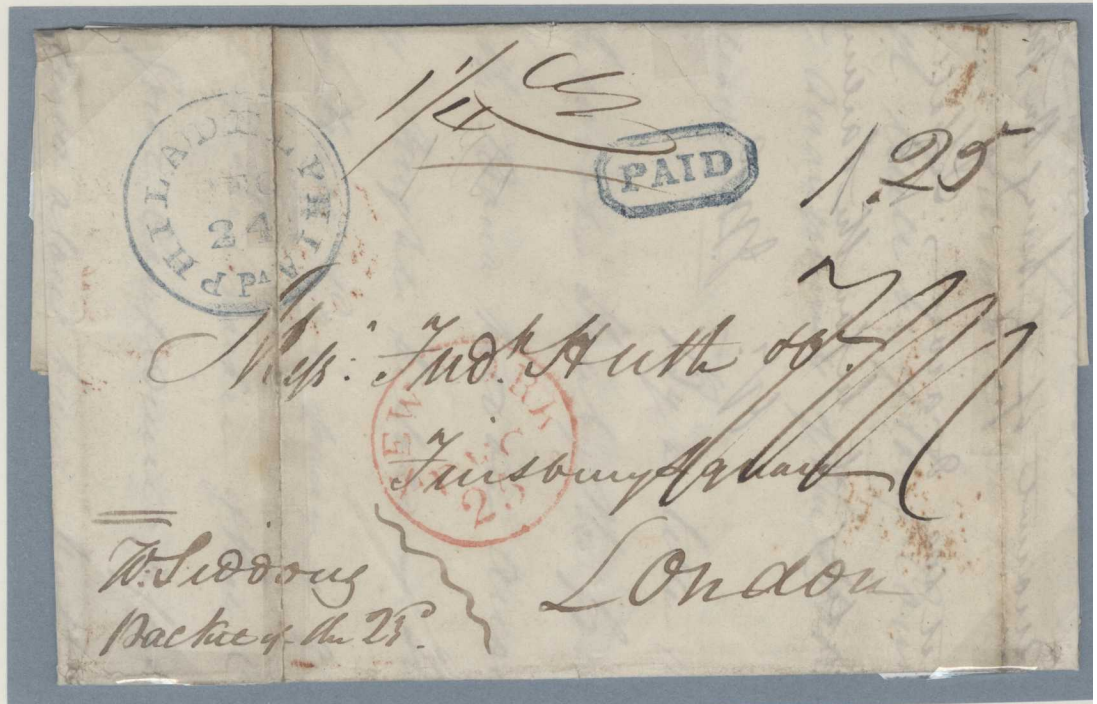 PHILADELPHIA Pᴬ
DEC
24
PAID
1.25
Messʳˢ: Fredᵏ Huth & Cº
NEW YORK
DEC
25
Finsbury Square
London
W: Siddons
Packet of the 25ᵗʰ